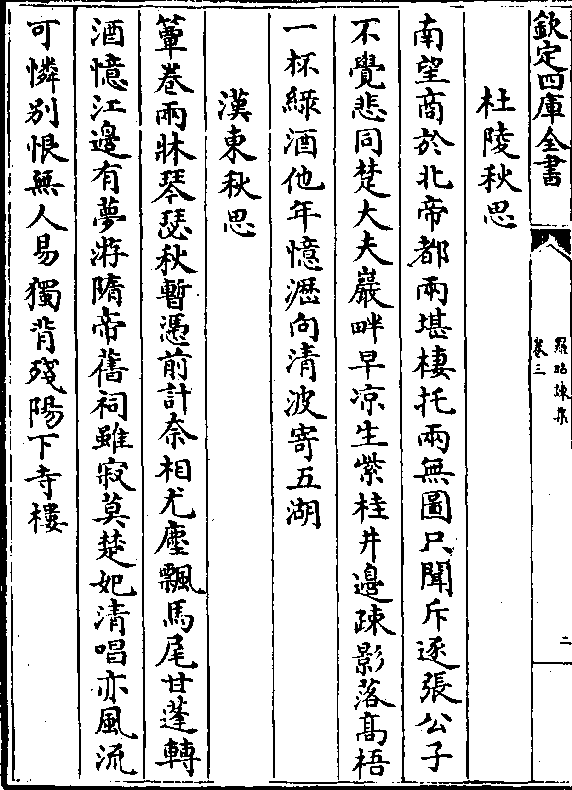 欽定四庫全書
羅昭諫集
卷三
二
杜陵秋思
南望商於北帝都兩堪棲托兩無圖只聞斥逐張公子
不覺悲同楚大夫巖畔早凉生紫桂井邊疎影落髙梧
一杯緑酒他年憶瀝向清波寄五湖
漢東秋思
簟卷兩牀琴瑟秋暫憑前計奈相尤塵飄馬尾甘蓬轉
酒憶江邊有夢游隋帝舊祠雖寂莫楚妃清唱亦風流
可憐别恨無人易獨背殘陽下寺樓